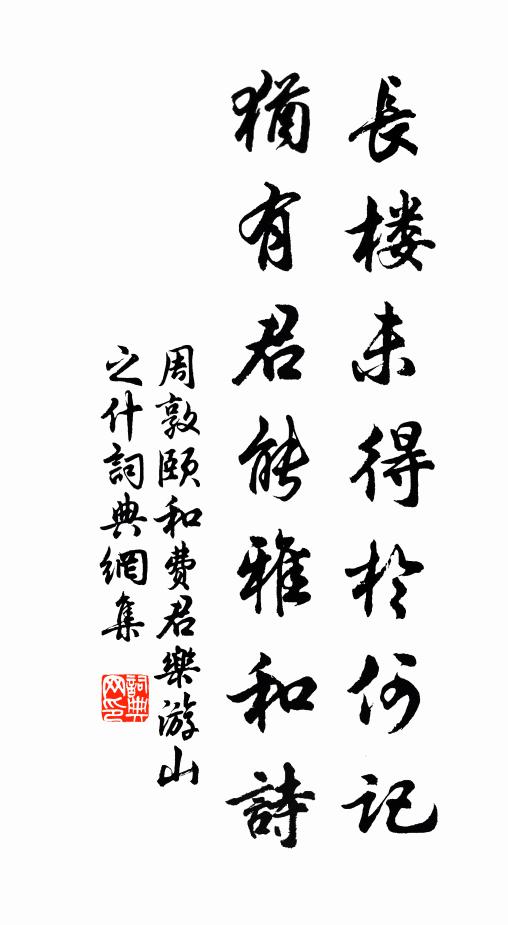 長楼未得於何記
猶有君能雅和詩
周敦頤和費君樂游山
之什詞典網集
詞典
网印